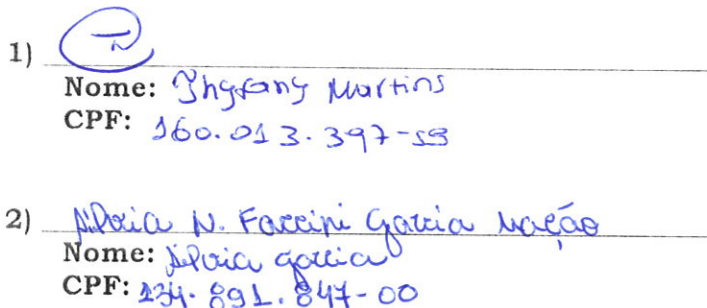 1)
Nome: Thyfany Martins
CPF: 160.013.397-59
2) Silvia N. Faccini Garcia Mação
Nome: Silvia garcia
CPF: 134.891.847-00